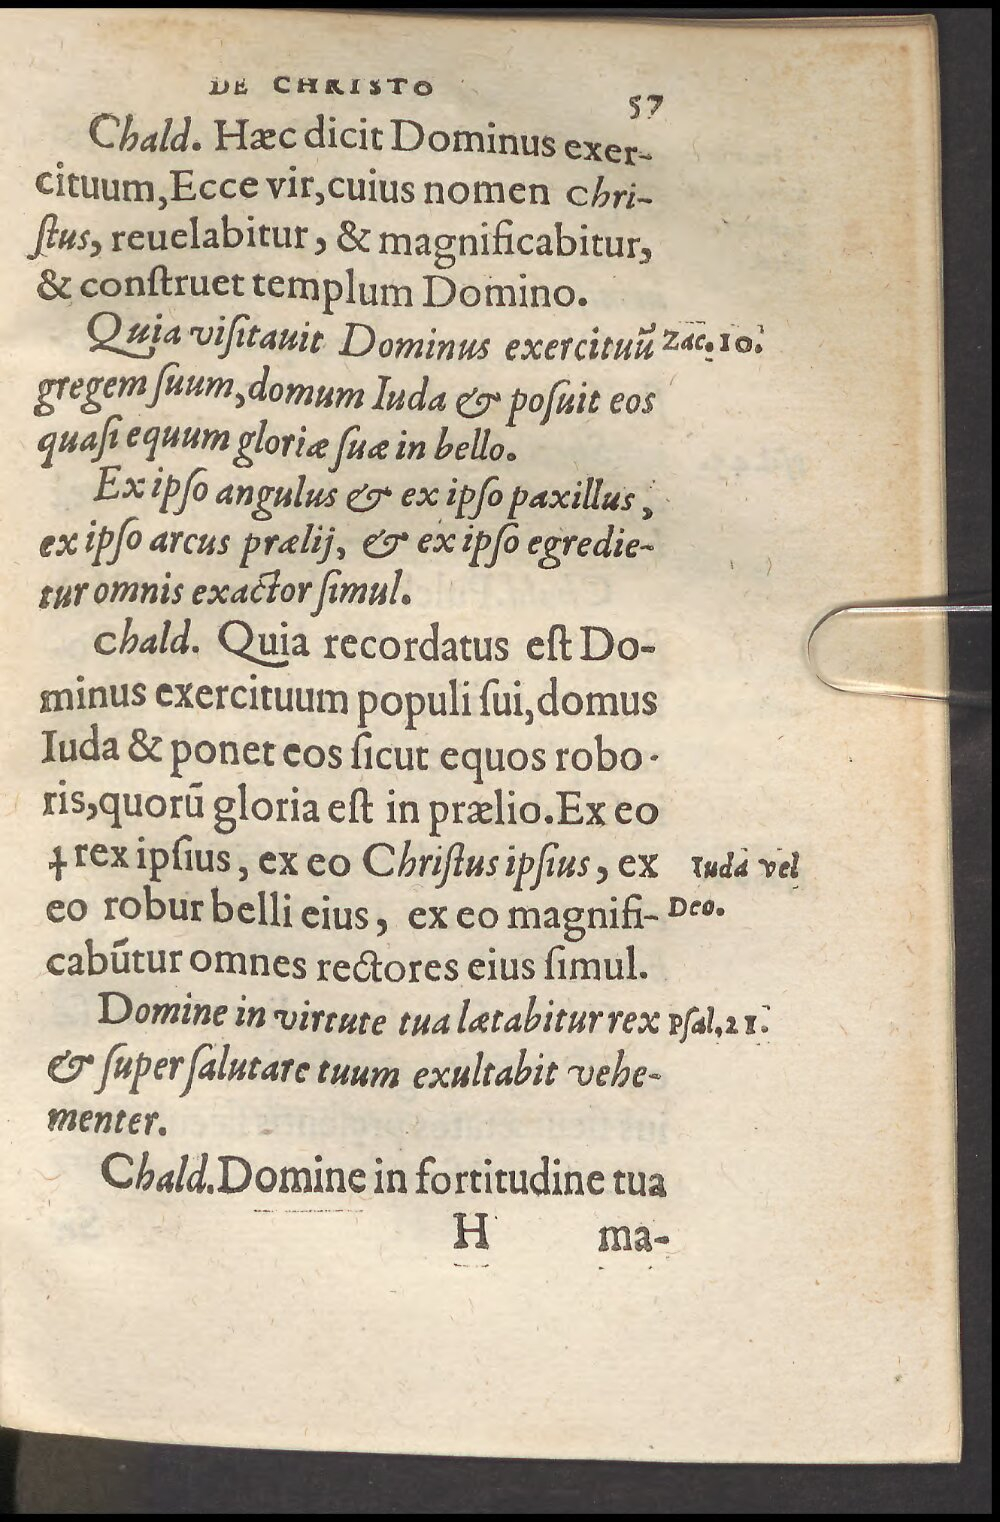 DE CHRISTO
57
Chald. Hæc dicit Dominus exer-
cituum, Ecce vir, cuius nomen Chri-
ſtus, reuelabitur, & magnificabitur,
& conſtruet templum Domino.
Quia viſitauit Dominus exercituū Zac. 10.
gregem ſuum, domum Iuda & poſuit eos
quaſi equum gloriæ ſuæ in bello.
Ex ipſo angulus & ex ipſo paxillus,
ex ipſo arcus prælij, & ex ipſo egredie-
tur omnis exactor ſimul.
Chald. Quia recordatus eſt Do-
minus exercituum populi ſui, domus
Iuda & ponet eos ſicut equos robo-
ris, quorū gloria eſt in prælio. Ex eo
rex ipſius, ex eo Chriſtus ipſius, ex Iuda vel
eo robur belli eius, ex eo magnifi- Deo.
cabūtur omnes rectores eius ſimul.
Domine in virtute tua lætabitur rex Pſal, 21.
& ſuper ſalutare tuum exultabit vehe-
menter.
Chald. Domine in fortitudine tua
H ma-